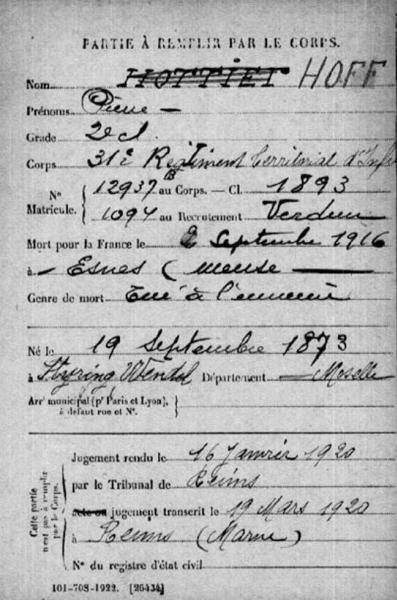 PARTIE À REMPLIR PAR LE CORPS.
Nom HOTTIET HOFF
Prénoms Pierre
Grade 2e cl.
Corps 31e Régiment Territorial d'Infie
N° Matricule. { 12937 B au Corps. — Cl. 1893
1094 au Recrutement Verdun
Mort pour la France le 2 Septembre 1916
à Esnes (Meuse
Genre de mort Tué à l'ennemi
Né le 19 Septembre 1873
à Styring Wendel Département Moselle
Arrt municipal (pr Paris et Lyon), à défaut rue et N°. }
Cette partie n'est pas à remplir par le Corps.
Jugement rendu le 16 Janvier 1920
par le Tribunal de Reims
acte ou jugement transcrit le 19 Mars 1920
à Reims (Marne)
N° du registre d'état civil
101-708-1922. [26434]